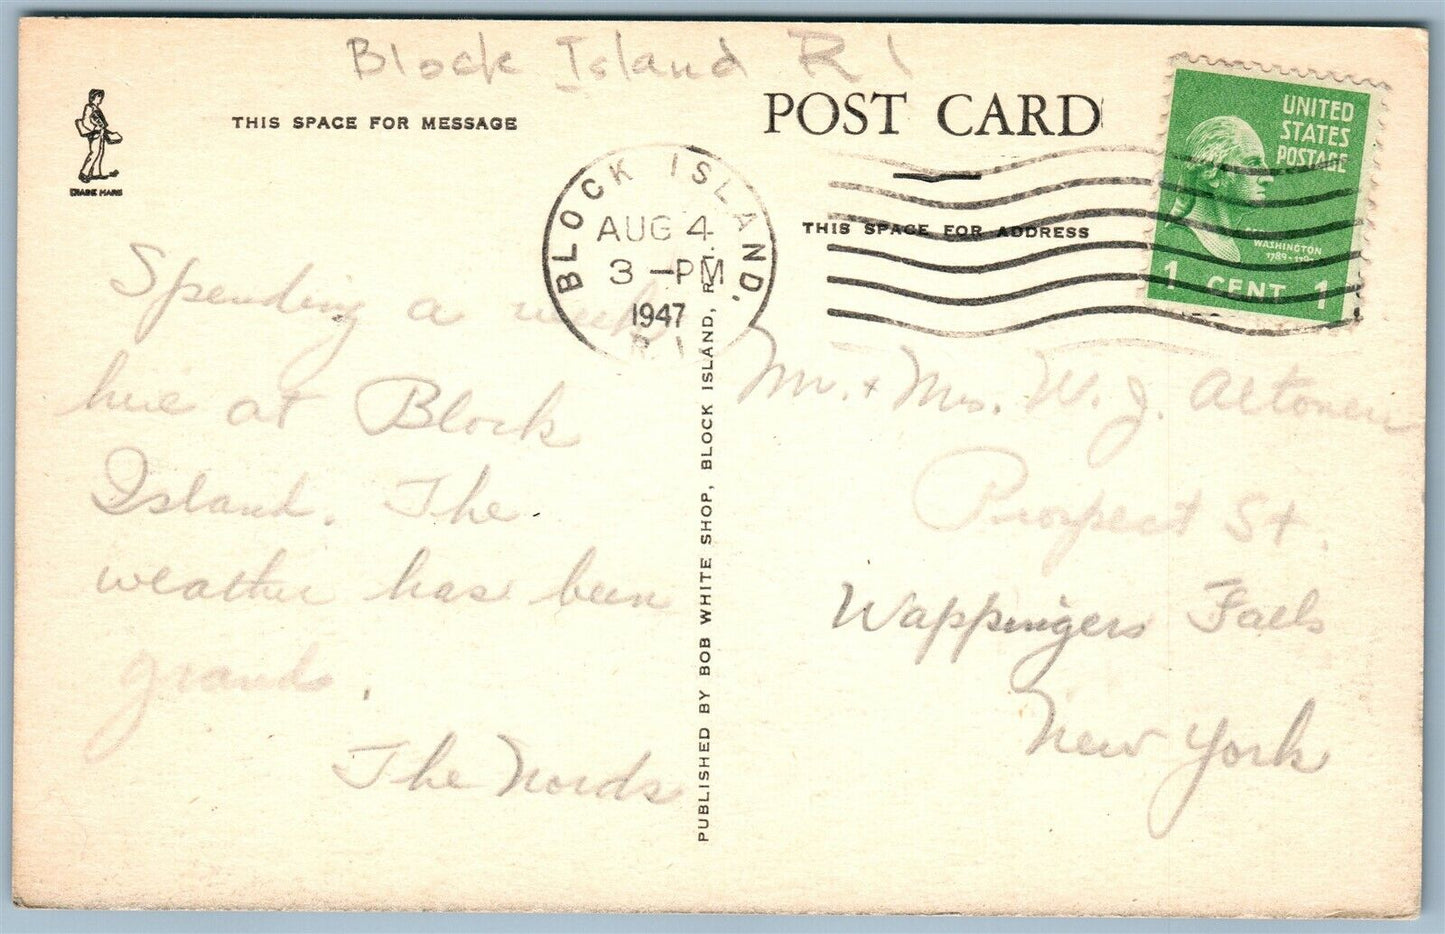 Block Island R I
THIS SPACE FOR MESSAGE
POST CARD
TRADE MARK
BLOCK ISLAND,
AUG 4
3 -PM
1947
R.I.
UNITED
STATES
POSTAGE
WASHINGTON
1 CENT 1
THIS SPACE FOR ADDRESS
Spending a week
here at Block
Island. The
weather has been
grand.
The Nords
PUBLISHED BY BOB WHITE SHOP, BLOCK ISLAND, R. I.
Mr. + Mrs. W. J.
Prospect St.
Wappingers Falls
New York